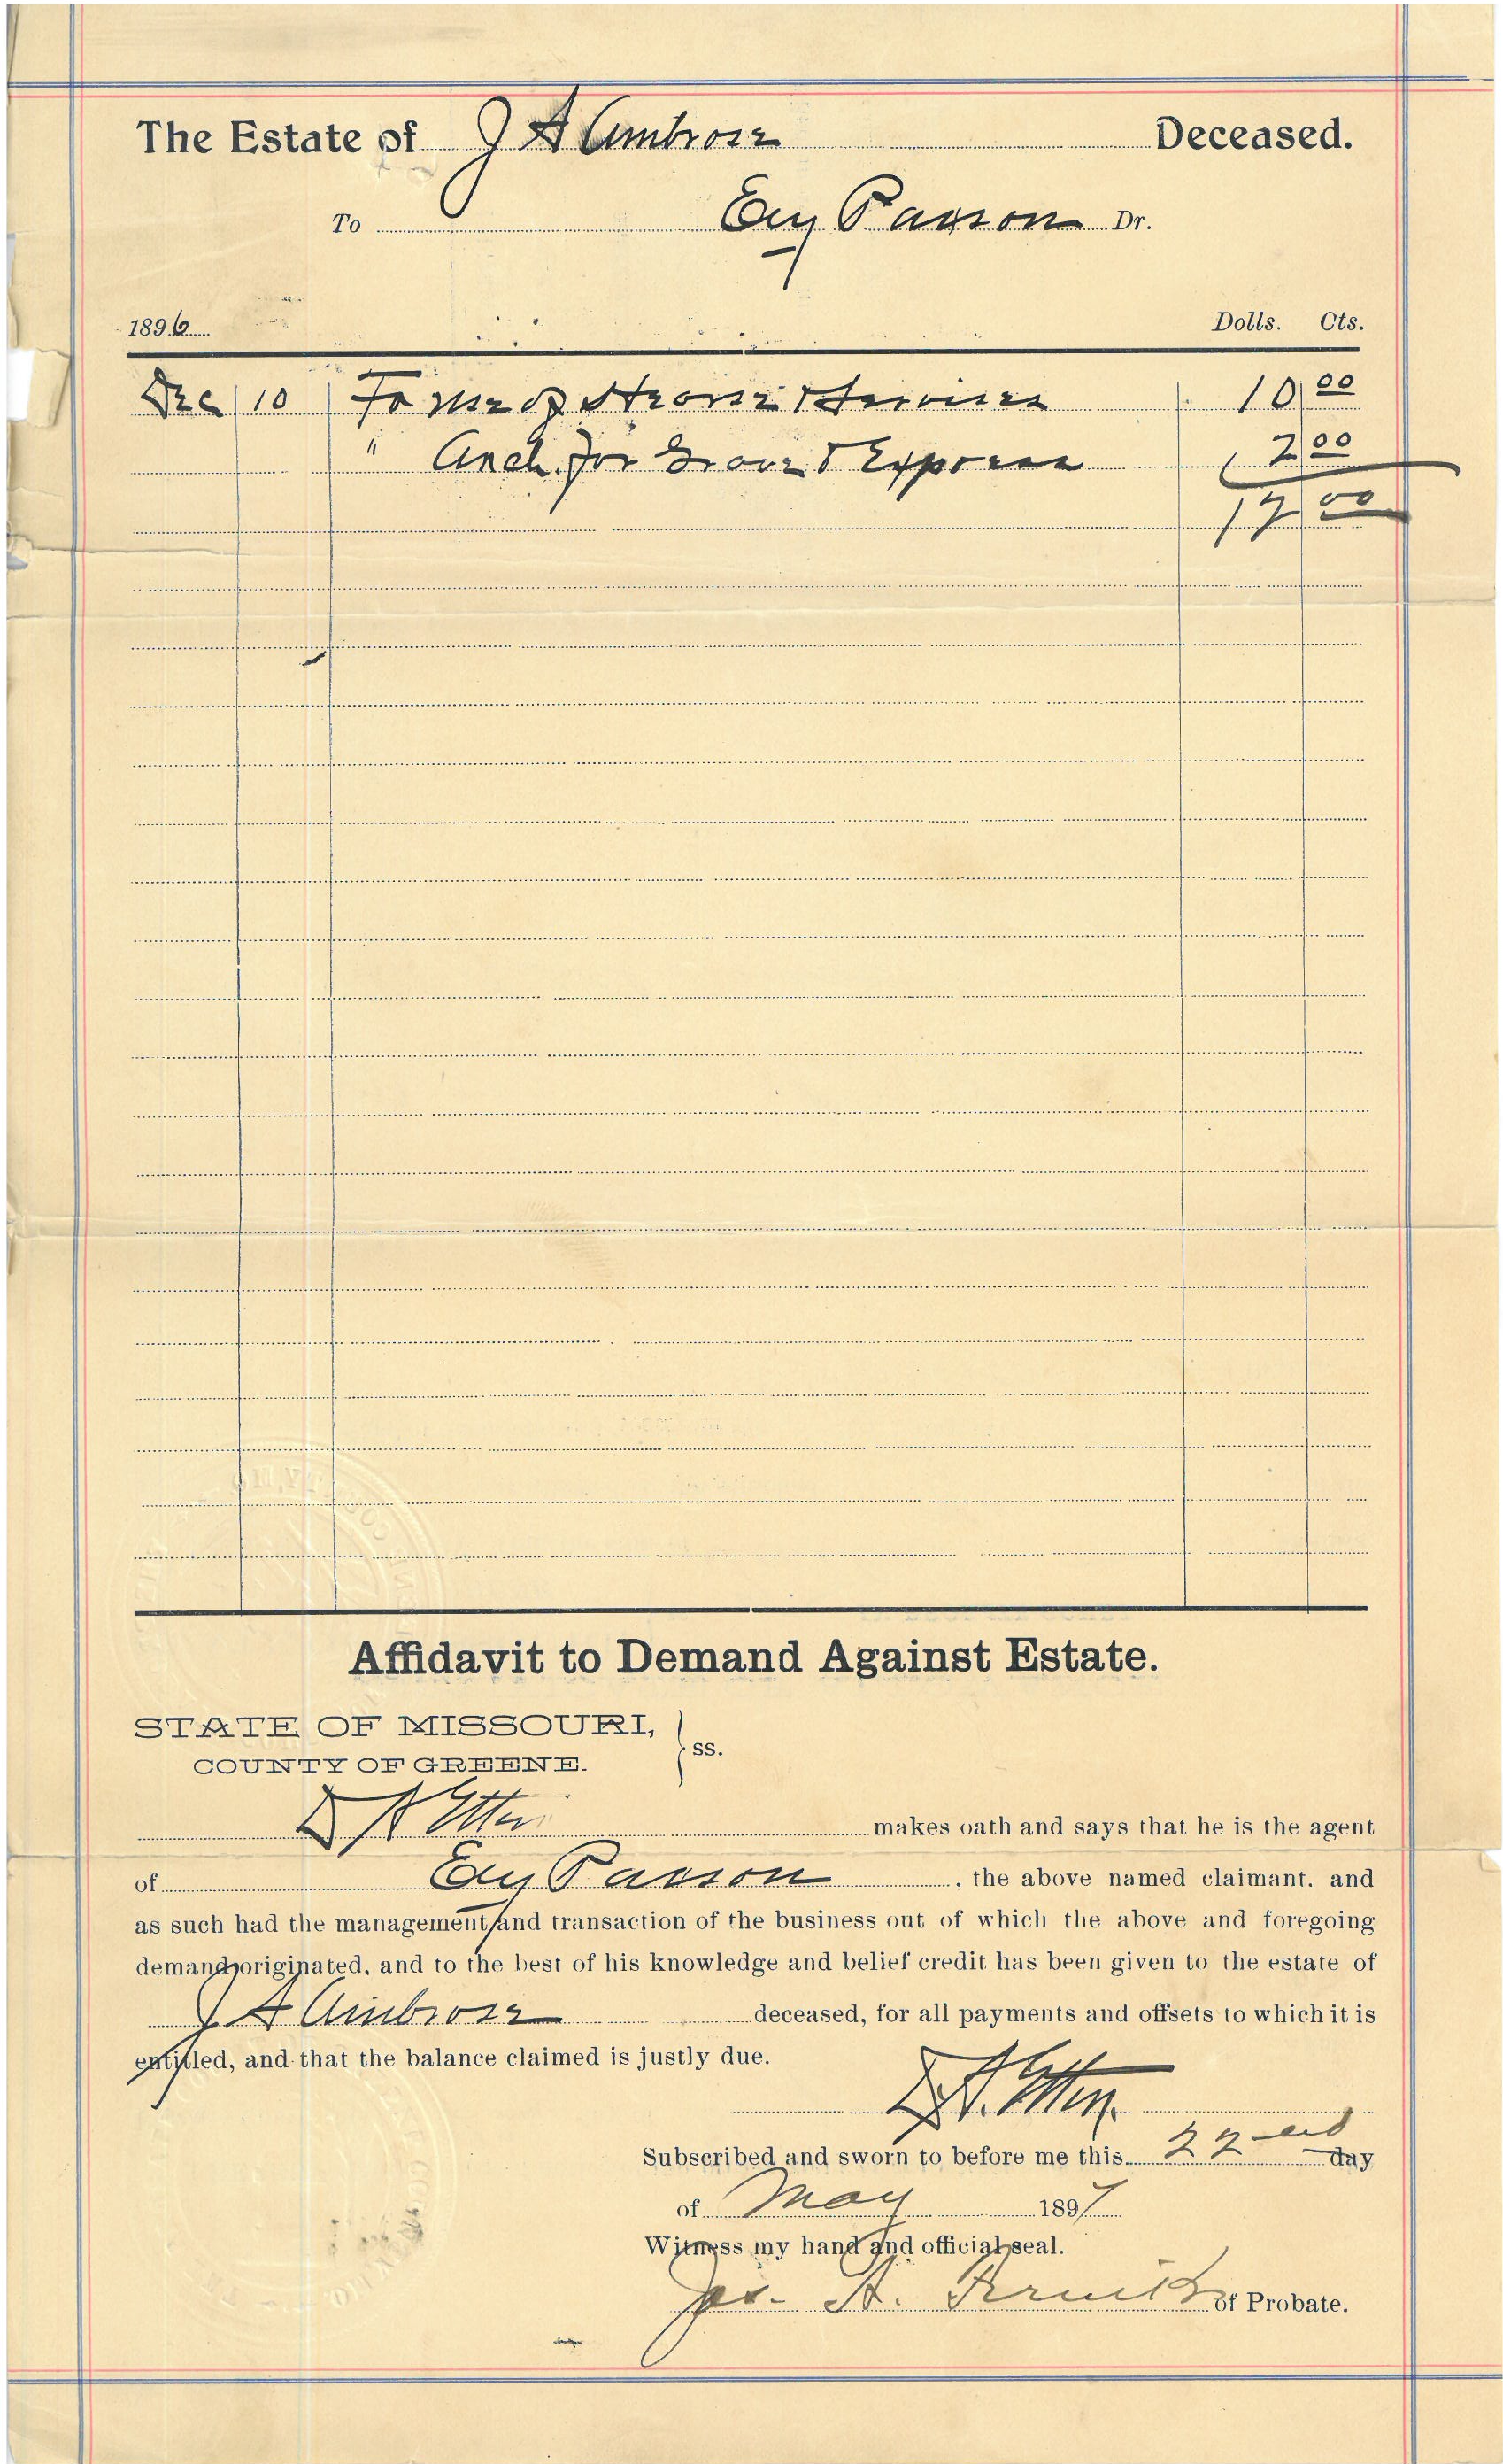 The Estate of J A Ambrose Deceased.
To Ely Paxson Dr.
1896 Dolls. Cts.
Dec 10 To use of Hearse & Services 10 00
" Cash for Grave & Express 7 00
17 00
Affidavit to Demand Against Estate.
STATE OF MISSOURI,
COUNTY OF GREENE. } ss.
D A Etter makes oath and says that he is the agent
of Ely Paxson, the above named claimant. and
as such had the management and transaction of the business out of which the above and foregoing
demand originated, and to the best of his knowledge and belief credit has been given to the estate of
J A Ambrose deceased, for all payments and offsets to which it is
entitled, and that the balance claimed is justly due.
D A. Etter
Subscribed and sworn to before me this 22nd day
of May 1897
Witness my hand and official seal.
Jas. A. of Probate.